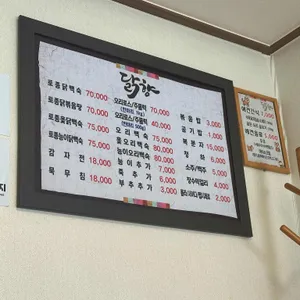 닭향
토종닭백숙 70,000
토종닭볶음탕 70,000
토종옻닭백숙 75,000
토종능이닭백숙 75,000
감자전 18,000
묵무침 18,000
오리로스/주물럭 70,000
오리로스/주물럭 40,000
오리백숙 75,000
옻오리백숙 80,000
능이오리백숙 80,000
능이추가 7,000
죽추가 6,000
부추추가 3,000
볶음밥 3,000
공기밥 1,000
복분자 15,000
청하 6,000
소주/맥주 5,000
장수막걸리 4,000
2,000